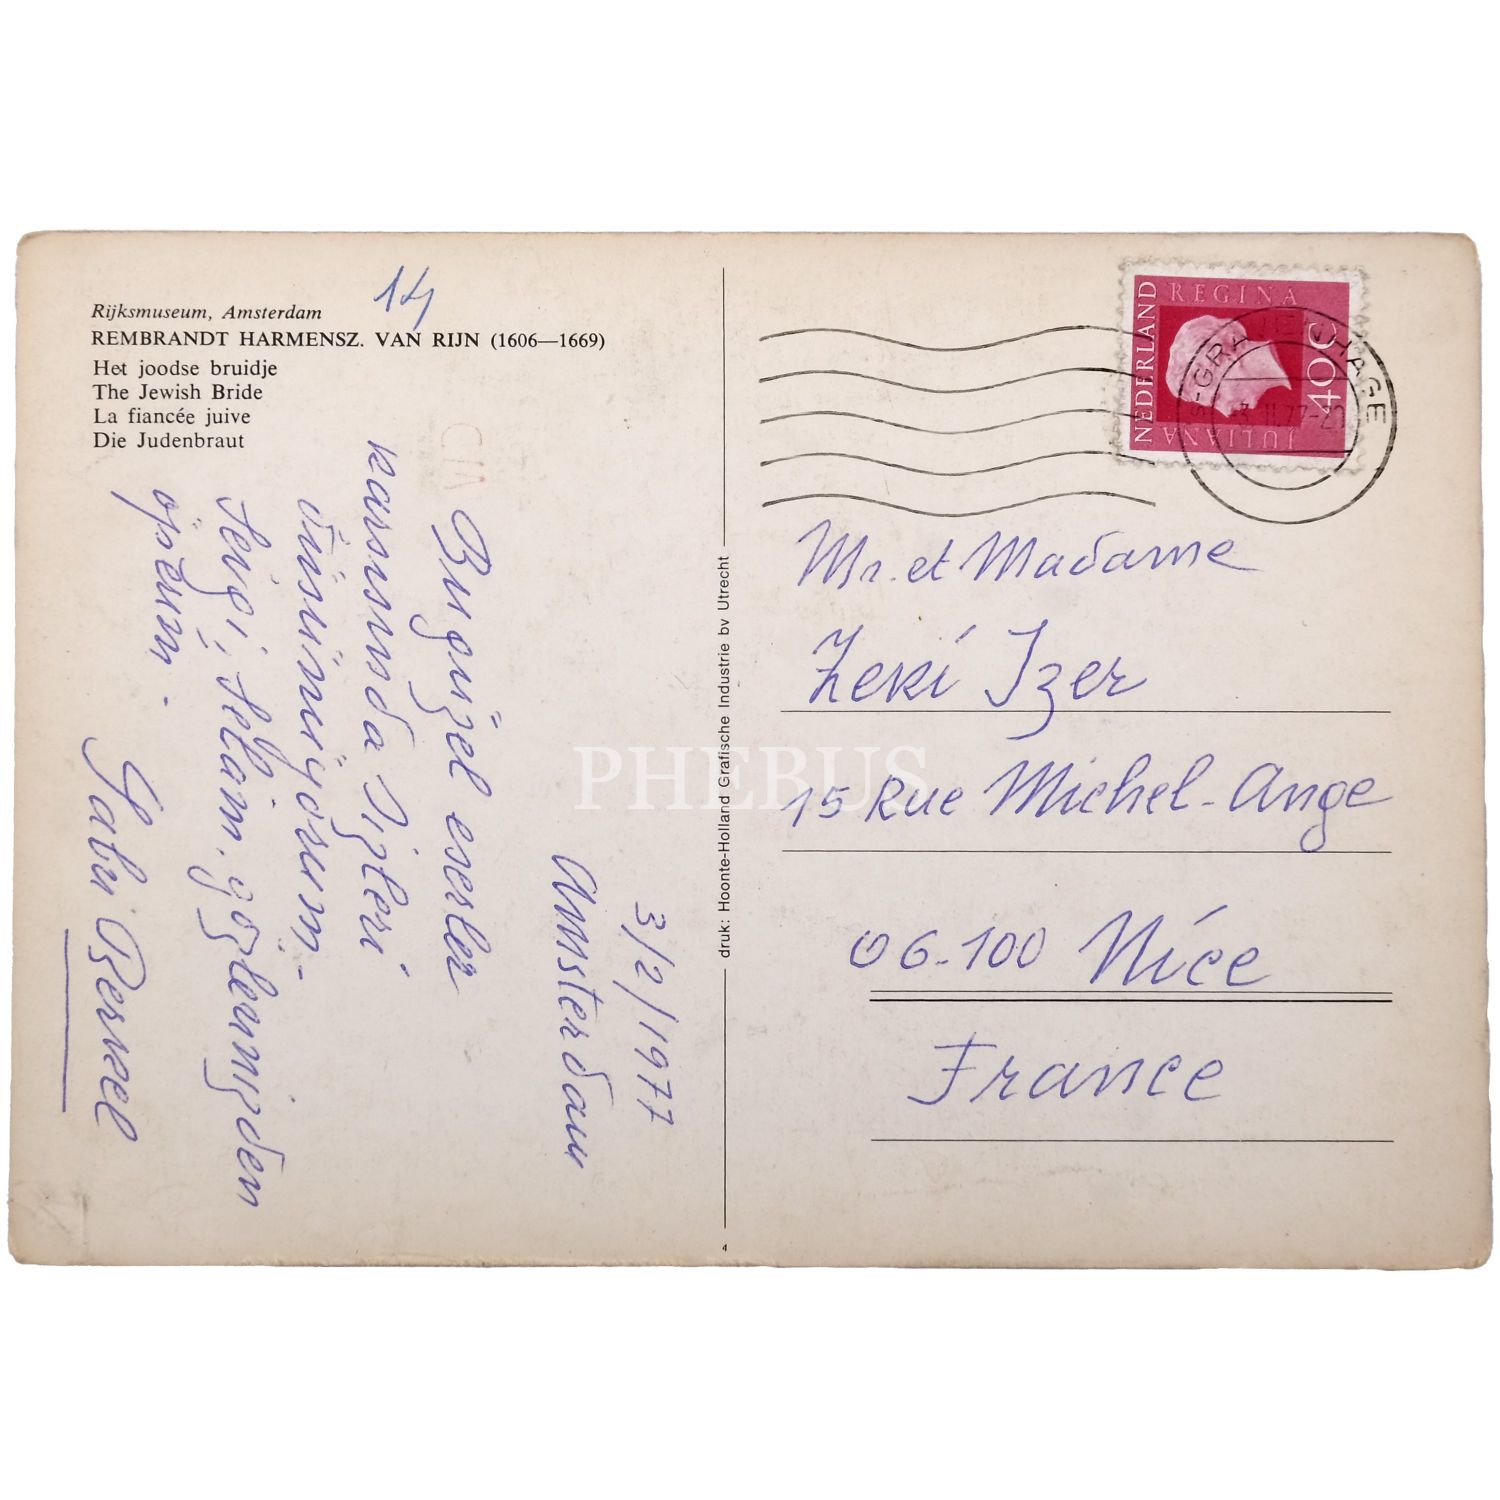 Rijksmuseum, Amsterdam
REMBRANDT HARMENSZ. VAN RIJN (1606—1669)
Het joodse bruidje
The Jewish Bride
La fiancée juive
Die Judenbraut
14
3/2/1977
Amsterdam
Bu güzel eserler
karşısında Sizleri
düşünüyorum.
Sevgi, selam, gözlerinizden
öperim.
Sabri Berkel
druk: Hoonte-Holland Grafische Industrie bv Utrecht
4
NEDERLAND
REGINA
JULIANA
40c
'S-GRAVENHAGE
3.II.77-20
Mr. et Madame
Zeki Izer
15 Rue Michel-Ange
06-100 Nice
France
PHEBUS